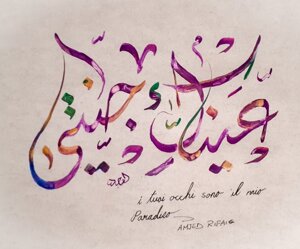 عيناكِ جنتي
i tuoi occhi sono il mio
Paradiso
AMJED RIFAIE